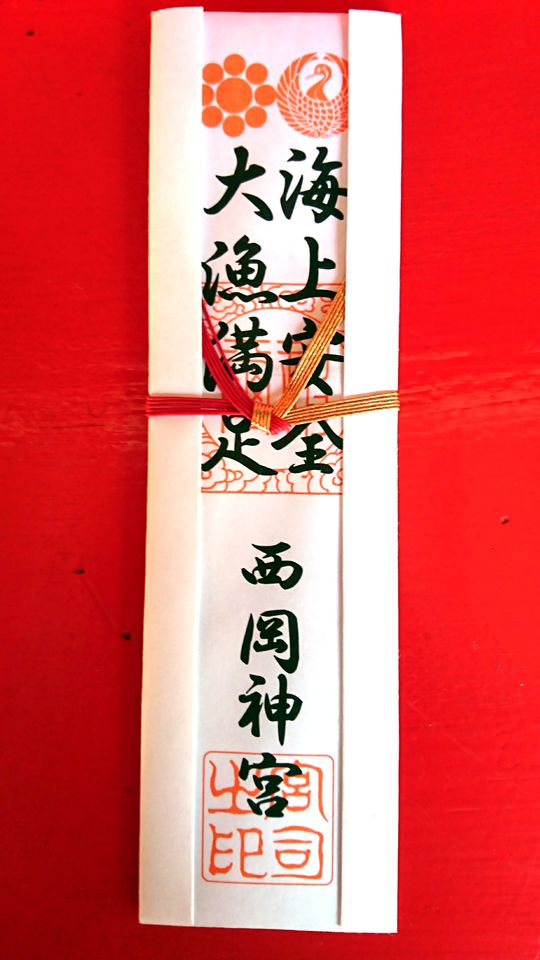 海上安全
大漁満足
西岡神宮
宮司
之印